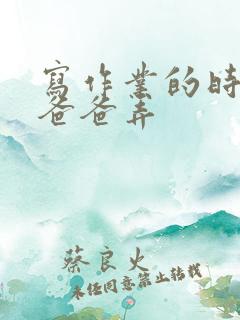 寫作業的時
爸爸弄
蔡良火
未經同意禁止轉載